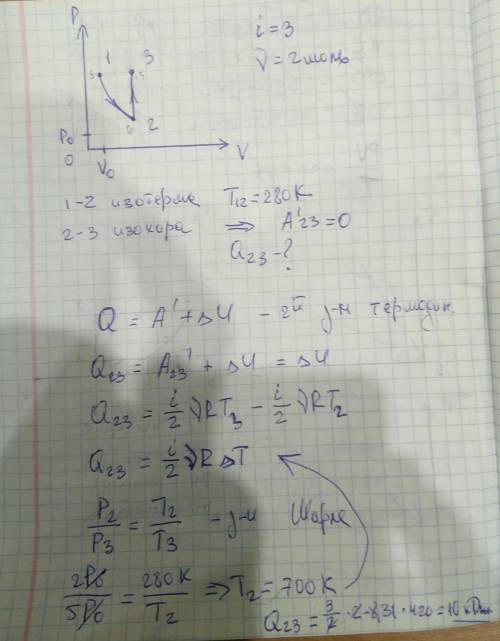 P
1 3
5 5
2 2
P₀
0 V₀ V
i = 3
ν = 2 моль
1-2 изотерма T₁₂ = 280 K
2-3 изохора ⟹ A'₂₃ = 0
Q₂₃ - ?
Q = A' + ΔU - 2й з-н термодин.
Q₂₃ = A₂₃' + ΔU = ΔU
Q₂₃ = i/2 νRT₃ - i/2 νRT₂
Q₂₃ = i/2 νRΔT
P₂/P₃ = T₂/T₃ - з-н Шарля
2P₀/5P₀ = 280 K/T₂ ⟹ T₂ = 700 K
Q₂₃ = 3/2 · 2 · 8,31 · 420 = 10 кДж